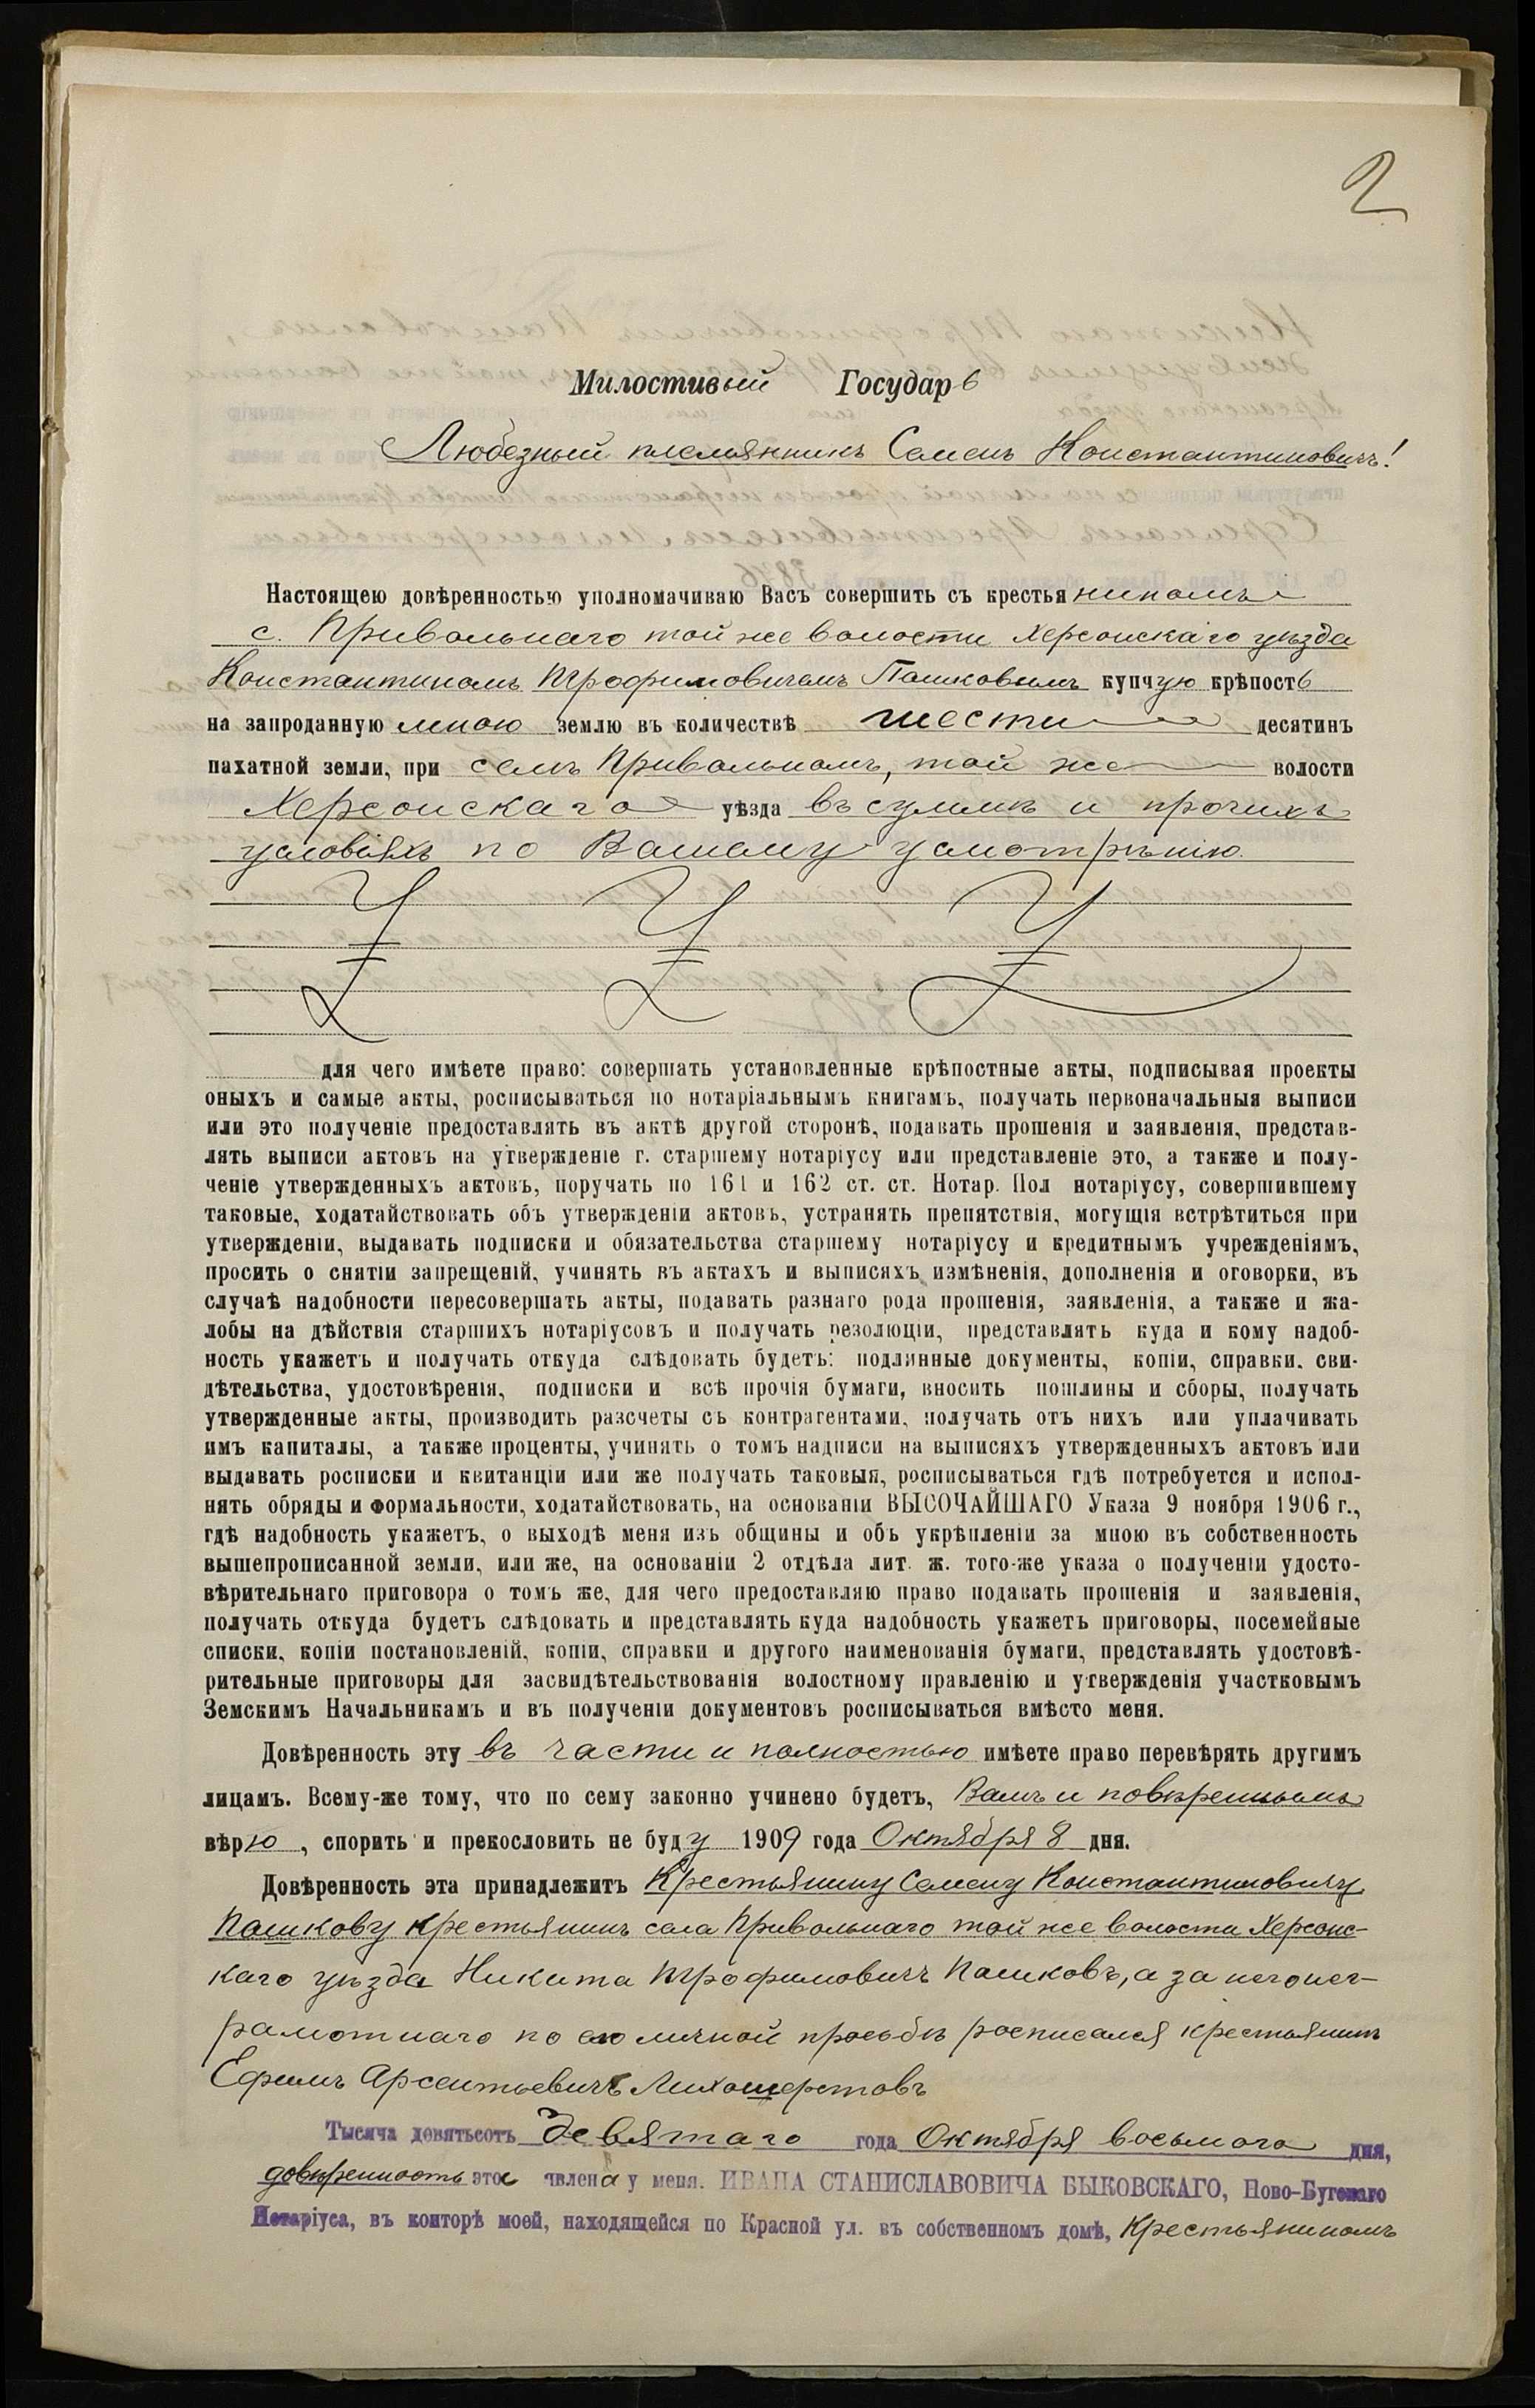 2
Милостивый Государь
Любезный племянникъ Семенъ Константиновичъ!
Настоящею довѣренностью уполномачиваю Васъ совершить съ крестьяниномъ
с. Привольнаго той же волости Херсонскаго уѣзда
Константиномъ Трофимовичемъ Пашковымъ купчую крѣпость
на запроданную мною землю въ количествѣ шести десятинъ
пахатной земли, при селѣ Привольномъ, той же волости
Херсонскаго уѣзда въ суммѣ и прочихъ
условіяхъ по Вашему усмотрѣнію.
для чего имѣете право: совершать установленные крѣпостные акты, подписывая проекты
оныхъ и самые акты, росписываться по нотаріальнымъ книгамъ, получать первоначальныя выписи
или это полученіе предоставлять въ актѣ другой сторонѣ, подавать прошенія и заявленія, представ-
лять выписи актовъ на утвержденіе г. старшему нотаріусу или представленіе это, а также и полу-
ченіе утвержденныхъ актовъ, поручать по 161 и 162 ст. ст. Нотар. Пол нотаріусу, совершившему
таковые, ходатайствовать объ утвержденіи актовъ, устранять препятствія, могущія встрѣтиться при
утвержденіи, выдавать подписки и обязательства старшему нотаріусу и кредитнымъ учрежденіямъ,
просить о снятіи запрещеній, учинять въ актахъ и выписяхъ измѣненія, дополненія и оговорки, въ
случаѣ надобности пересовершать акты, подавать разнаго рода прошенія, заявленія, а также и жа-
лобы на дѣйствія старшихъ нотаріусовъ и получать резолюціи, представлять куда и кому надоб-
ность укажетъ и получать откуда слѣдовать будетъ: подлинные документы, копіи, справки. сви-
дѣтельства, удостовѣренія, подписки и всѣ прочія бумаги, вносить пошлины и сборы, получать
утвержденные акты, производить разсчеты съ контрагентами, получать отъ нихъ или уплачивать
имъ капиталы, а также проценты, учинять о томъ надписи на выписяхъ утвержденныхъ актовъ или
выдавать росписки и квитанціи или же получать таковыя, росписываться гдѣ потребуется и испол-
нять обряды и формальности, ходатайствовать, на основаніи ВЫСОЧАЙШАГО Указа 9 ноября 1906 г.,
гдѣ надобность укажетъ, о выходѣ меня изъ общины и объ укрѣпленіи за мною въ собственность
вышепрописанной земли, или же, на основаніи 2 отдѣла лит. ж. того-же указа о полученіи удосто-
вѣрительнаго приговора о томъ же, для чего предоставляю право подавать прошенія и заявленія,
получать откуда будетъ слѣдовать и представлять куда надобность укажетъ приговоры, посемейные
списки, копіи постановленій, копіи, справки и другого наименованія бумаги, представлять удостовѣ-
рительные приговоры для засвидѣтельствованія волостному правленію и утвержденія участковымъ
Земскимъ Начальникамъ и въ полученіи документовъ росписываться вмѣсто меня.
Довѣренность эту въ части и полностью имѣете право перевѣрять другимъ
лицамъ. Всему-же тому, что по сему законно учинено будетъ, Вамъ и повѣреннымъ
вѣрю, спорить и прекословить не буду 1909 года Октября 8 дня.
Довѣренность эта принадлежитъ Крестьянину Семену Константиновичу
Пашкову Крестьянинъ села Привольнаго той же волости Херсонс-
каго уѣзда Никита Трофимовичъ Пашковъ, а за него нег-
рамотнаго по его личной просьбѣ росписался крестьянинъ
Ефимъ Арсентьевичъ Лихошерстовъ
Тысяча девятьсотъ девятаго года Октября восьмого дня,
довѣренность эта явлена у меня. ИВАНА СТАНИСЛАВОВИЧА БЫКОВСКАГО, Ново-Бугскаго
Нотаріуса, въ конторѣ моей, находящейся по Красной ул. въ собственномъ домѣ, Крестьяниномъ